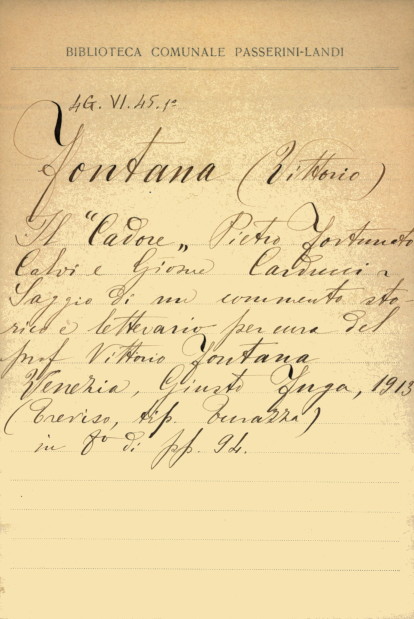 BIBLIOTECA COMUNALE PASSERINI-LANDI
4G. VI. 45. 1º
Fontana (Vittorio)
Il "Cadore„ Pietro Fortunato
Calvi e Giosue Carducci ~
Saggio di un commento sto
rico e letterario per cura del
prof Vittorio Fontana
Venezia, Giusto Fuga, 1913
(Treviso, tip. Turazza)
in 8º di pp. 94.